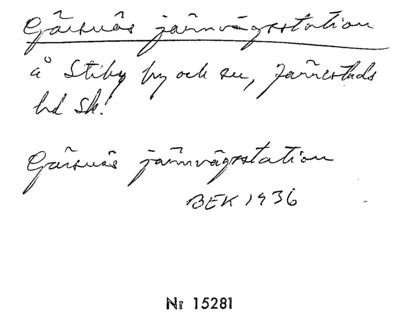 Gärsnäs järnvägsstation
å Stiby by och sn, Järrestads
hd Sk.
Gärsnäs järnvägsstation
BEK 1936
Nr 15281